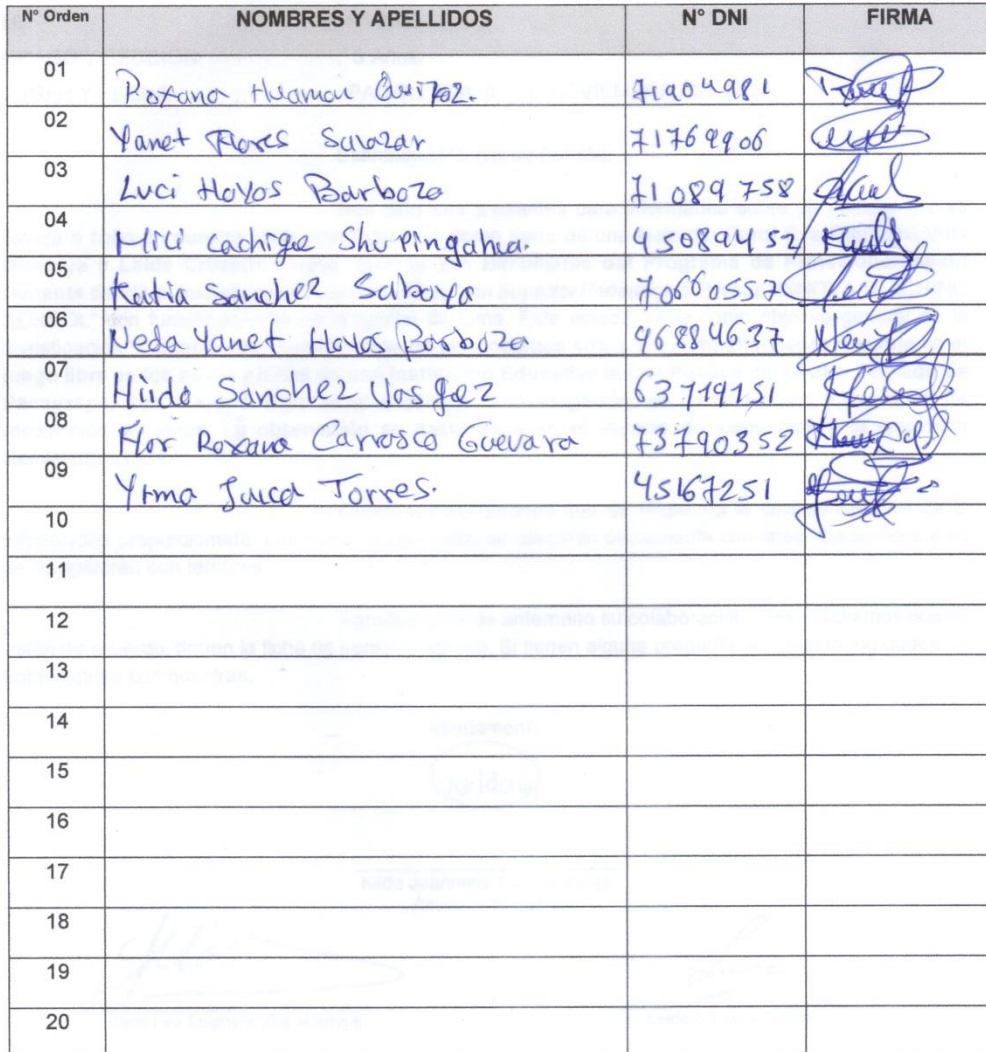 N° Orden NOMBRES Y APELLIDOS N° DNI FIRMA
01 Roxana Huaman Quiroz. 71904981
02 Yanet Flores Salazar 71769906
03 Luci Hoyos Barboza 71089758
04 Mili Cachique Shupingahua. 45089452
05 Katia Sanchez Saboya 70600557
06 Neda Yanet Hoyos Barboza 46884637
07 Hilda Sanchez Vasquez 63719151
08 Flor Roxana Carrasco Guevara 73790352
09 Yrma Torres. 45167251
10
11
12
13
14
15
16
17
18
19
20